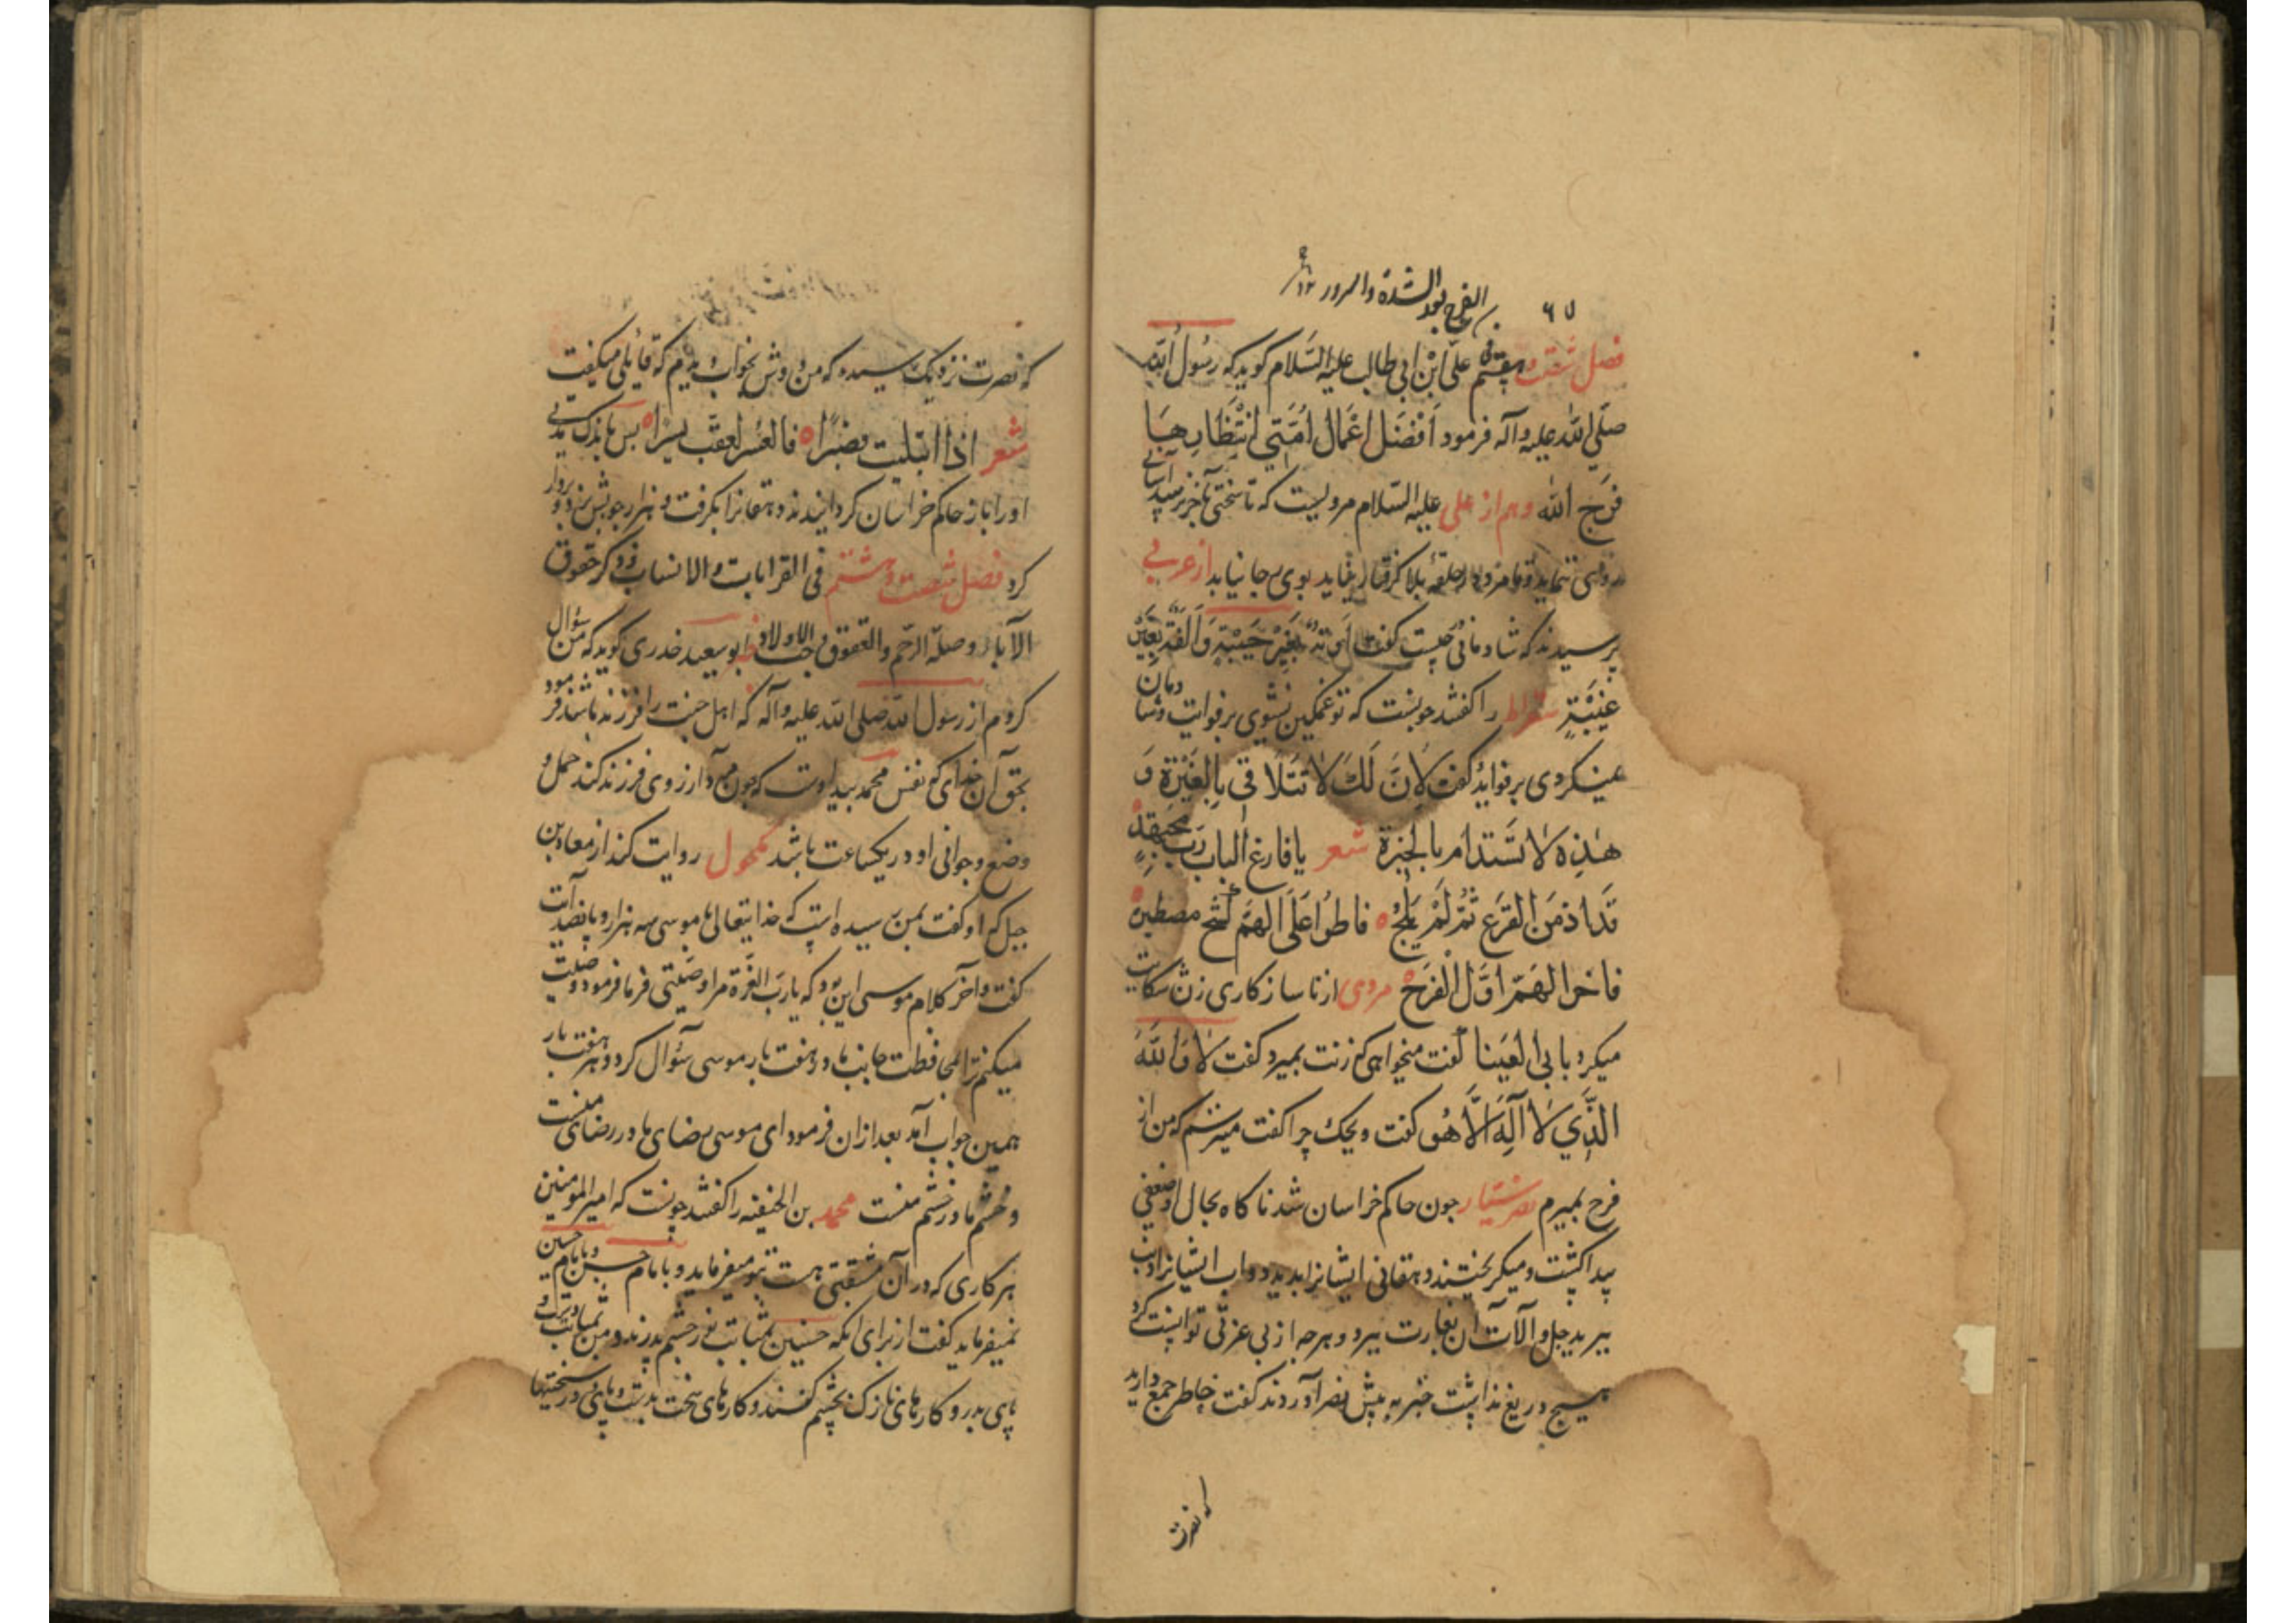 الفرج بعد الشدة والسرور
فصل شصت و هفتم علی ابن ابی طالب علیه السلام کوید که رسول الله
صلی الله علیه وآله فرمود افضل اعمال امتی انتظارها
فرج الله وهم از علی علیه السلام مرویست که تا سختی بآخر نرسد آسانی
روی ننماید و تا مرد در حلقهٔ بلا کرفتار نیاید بوی رجا نیابد از عربی
پرسیدند که شادمانی چیست کفت بغیر خیبة والفة بغیر
غیبة سقراط را کفتند چونست که تو غمکین نشوی بر فوایت وشادمان
نکردی بر فواید کفت لان لك لا تتلاقی بالعبرة و
هذه لا تستدام بالحبرة شعر یا فارغ الباب رب
قد اذ من الفرج ثم لم یلج فاطوا علی الهم کشح مصطبر
فاخر الهم اول الفرج مردی از ناسازکاری زن شکایت
میکرد با بی العینا کفت میخواهی که زنت بمیرد کفت لا والله
الذي لا اله الا هو کفت ویحک چرا کفت میترسم که من از
فرح بمیرم نصر سیار چون حاکم خراسان شد ناکاه بحال او ضعفی
پیدا کشت ومیکریختند دهقانی ایشانرا بدید دواب ایشانرا
ببرید جل و آلات آن بغارت ببرد و هرچه از بی عزتی توانست کرد
هیچ دریغ نداشت خبر به پیش نصر آوردند کفت خاطر جمع دارید
که نصرت
که نصرت نزدیک رسیده که من دوش بخواب دیدم که قایلی میکفت
شعر اذا ابتلیت فصبرا فالعسر یعقب یسرا پس باندک مدتی
او را باز حاکم خراسان کردانیدند دهقانرا بکرفت و هزار چوبش بزد و بردار
کرد فصل شصت و هشتم فی القرابات والانساب و ذکر حقوق
الآباء وصلة الرحم والعقوق وحب الاولاد ابو سعید خدری کوید که من سؤال
کردم از رسول الله صلی الله علیه وآله که اهل جنت را فرزند باشد فرمود
بحق آن خدای که نفس محمد بید اوست که چون مرد آرزوی فرزند کند حمل و
وضع و جوانی او در یکساعت باشد مکحول روایت کند از معاذ بن
جبل که او کفت بمن رسیده است که خدایتعالی با موسی سه هزار و پانصد آیت
کفت و آخر کلام موسی این بود که یا رب العزة مرا وصیتی فرما فرمود وصیت
میکنم ترا بمحافطت جانب مادر هفت بار موسی سؤال کرد و هر هفت بار
همین جواب آمد بعد از آن فرمود ای موسی رضای ما در رضای منست
و خشم مادر خشم منست محمد بن الحنفیه را کفتند چونست که امیر المومنین
هر کاری که در آن مشقتی هست بتو میفرماید و با امام حسن و با امام حسین
نمیفرماید کفت از برای آنکه حسنین بمثابت نور چشم پدرند و من بمثابت دست و
پای پدر و کارهای نازک بچشم کنند و کارهای سخت بدست و پای و در سختیها